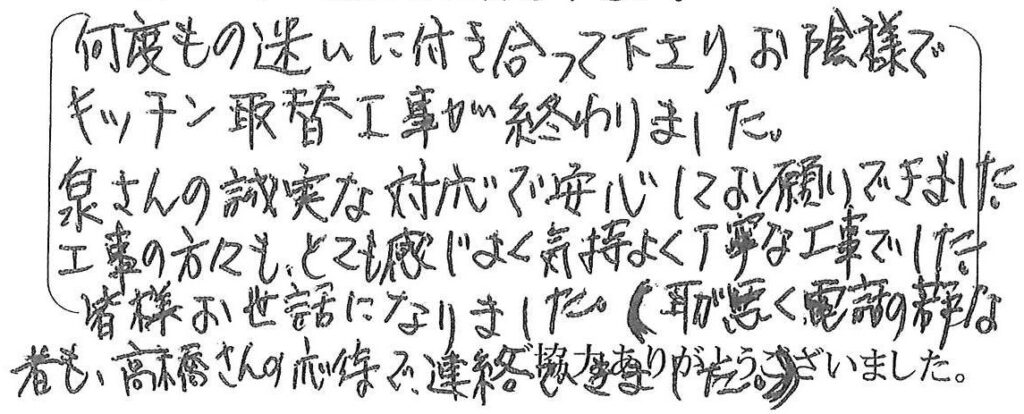 何度もの迷いに付き合って下さり、お陰様で
キッチン取替工事が終わりました。
泉さんの誠実な対応で安心してお願いできました
工事の方々も、とても感じよく気持よく丁寧な工事でした
皆様お世話になりました。(耳が悪く電話の苦手な
者も、高橋さんの応待で、連絡できました。)
ご協力ありがとうございました。